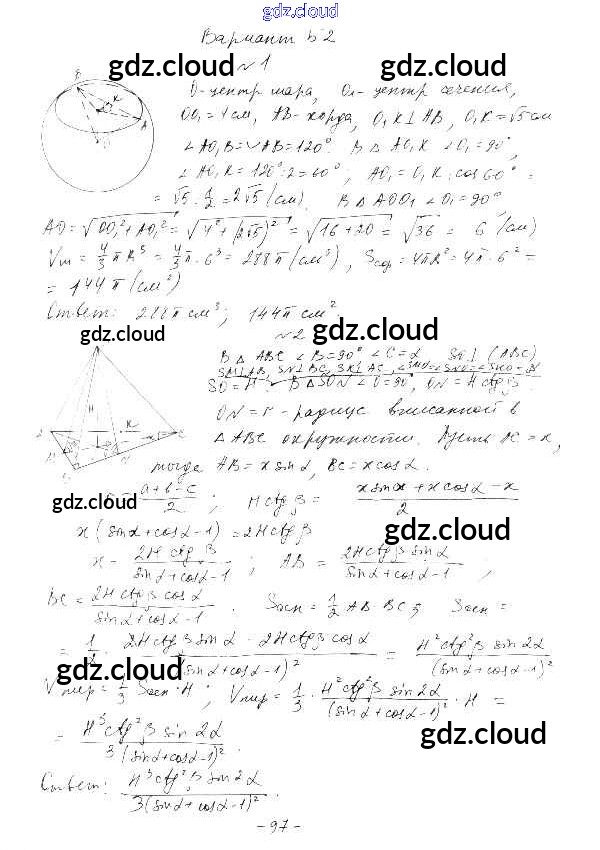 gdz.cloud
Вариант Б2
gdz.cloud gdz.cloud
№1
O-центр шара, O₁-центр сечения,
OO₁ = 4см, AB-хорда, O₁K⊥AB, O₁K=√5см
∠AO₁B=∪AB=120°. В △ AO₁K ∠O₁=90°,
∠AO₁K = 120°:2=60°, AO₁ = O₁K:cos60° =
= √5:1/2 = 2√5 (см). В △ AOO₁ ∠O₁=90°
AO = √OO₁²+AO₁² = √4²+(2√5)² = √16+20 = √36 = 6 (см)
Vш = 4/3 πR³ = 4/3 π·6³ = 288π (см³), Sсф=4πR²=4π·6²=
= 144π (см²)
Ответ: 288π см³; 144π см².
gdz.cloud gdz.cloud
№2
В △ ABC ∠B=90° ∠C=α SO⊥(ABC)
SM⊥AB, SN⊥BC, SK⊥AC,
SO=H. В △SON ∠O=90°, ON = H ctgβ
ON=r-радиус вписанной в
△ ABC окружности. Пусть AC=x,
тогда AB=x sinα, BC=x cosα.
gdz.cloud
r = a+b-c/2 ; H ctgβ = x sinα+x cosα-x/2
gdz.cloud
x(sinα+cosα-1)=2H ctgβ
x = 2H ctgβ/sinα+cosα-1 ; AB = 2H ctgβ sinα/sinα+cosα-1 ,
BC = 2H ctgβ cosα/sinα+cosα-1 . Sосн=1/2 AB·BC; Sосн=
= 1/2 · 2H ctgβ sinα · 2H ctgβ cosα/(sinα+cosα-1)² = H²ctg²β sin2α/(sinα+cosα-1)²
gdz.cloud gdz.cloud
Vпир=1/3 Sосн·H; Vпир=1/3 · H²ctg²β sin2α/(sinα+cosα-1)² ·H =
= H³ctg²β sin2α/3(sinα+cosα-1)²
gdz.cloud
Ответ: H³ctg²β sin2α/3(sinα+cosα-1)²
- 97 -